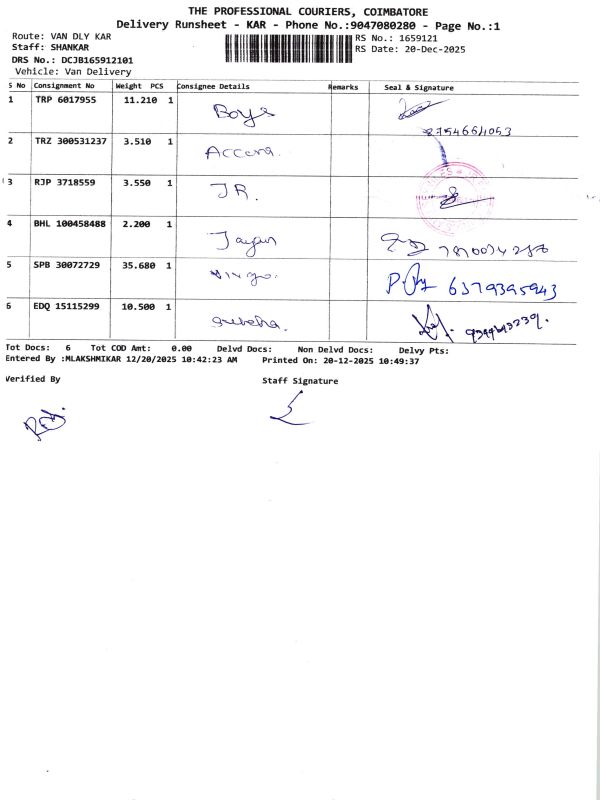 THE PROFESSIONAL COURIERS, COIMBATORE
Delivery Runsheet - KAR - Phone No.:9047080280 - Page No.:1
Route: VAN DLY KAR
RS No.: 1659121
Staff: SHANKAR
RS Date: 20-Dec-2025
DRS No.: DCJB165912101
Vehicle: Van Delivery
S No Consignment No Weight PCS Consignee Details Remarks Seal & Signature
1 TRP 6017955 11.210 1 Boys
8754664053
2 TRZ 300531237 3.510 1
3 RJP 3718559 3.550 1 JR.
4 BHL 100458488 2.200 1
5 SPB 30072729 35.680 1 6379395943
6 EDQ 15115299 10.500 1
Tot Docs: 6 Tot COD Amt: 0.00 Delvd Docs: Non Delvd Docs: Delvy Pts:
Entered By :MLAKSHMIKAR 12/20/2025 10:42:23 AM Printed On: 20-12-2025 10:49:37
Verified By Staff Signature